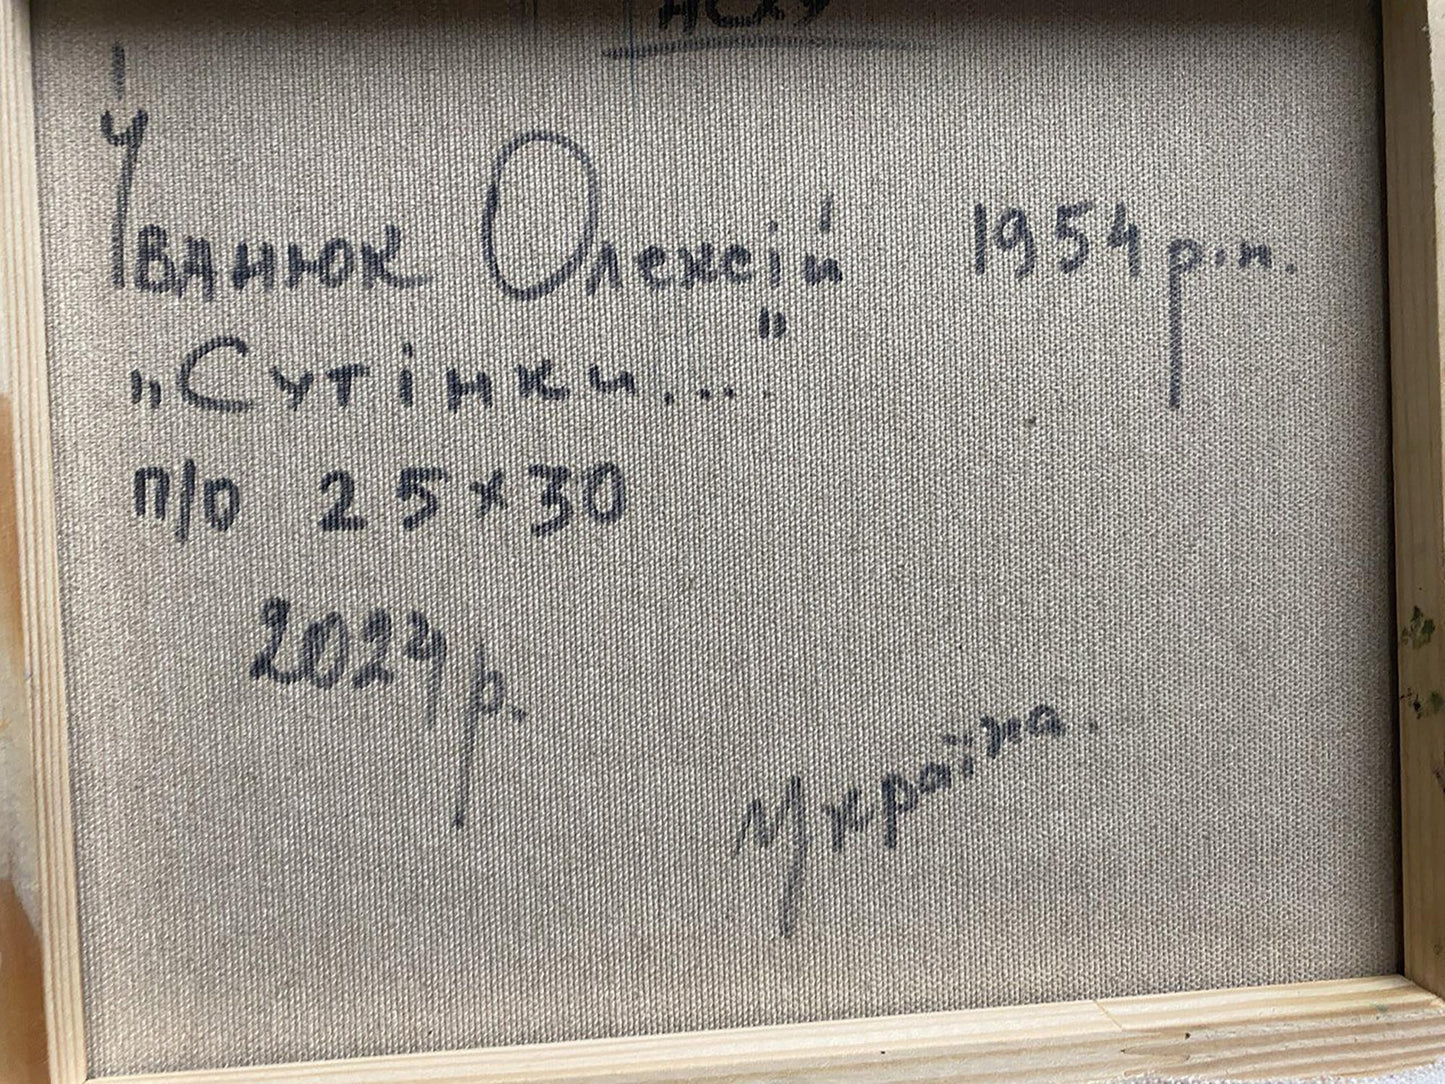 НСХУ
Іванюк Олексій 1954 р.н.
„Сутінки...."
п/о 25х30
2024р.
Україна.